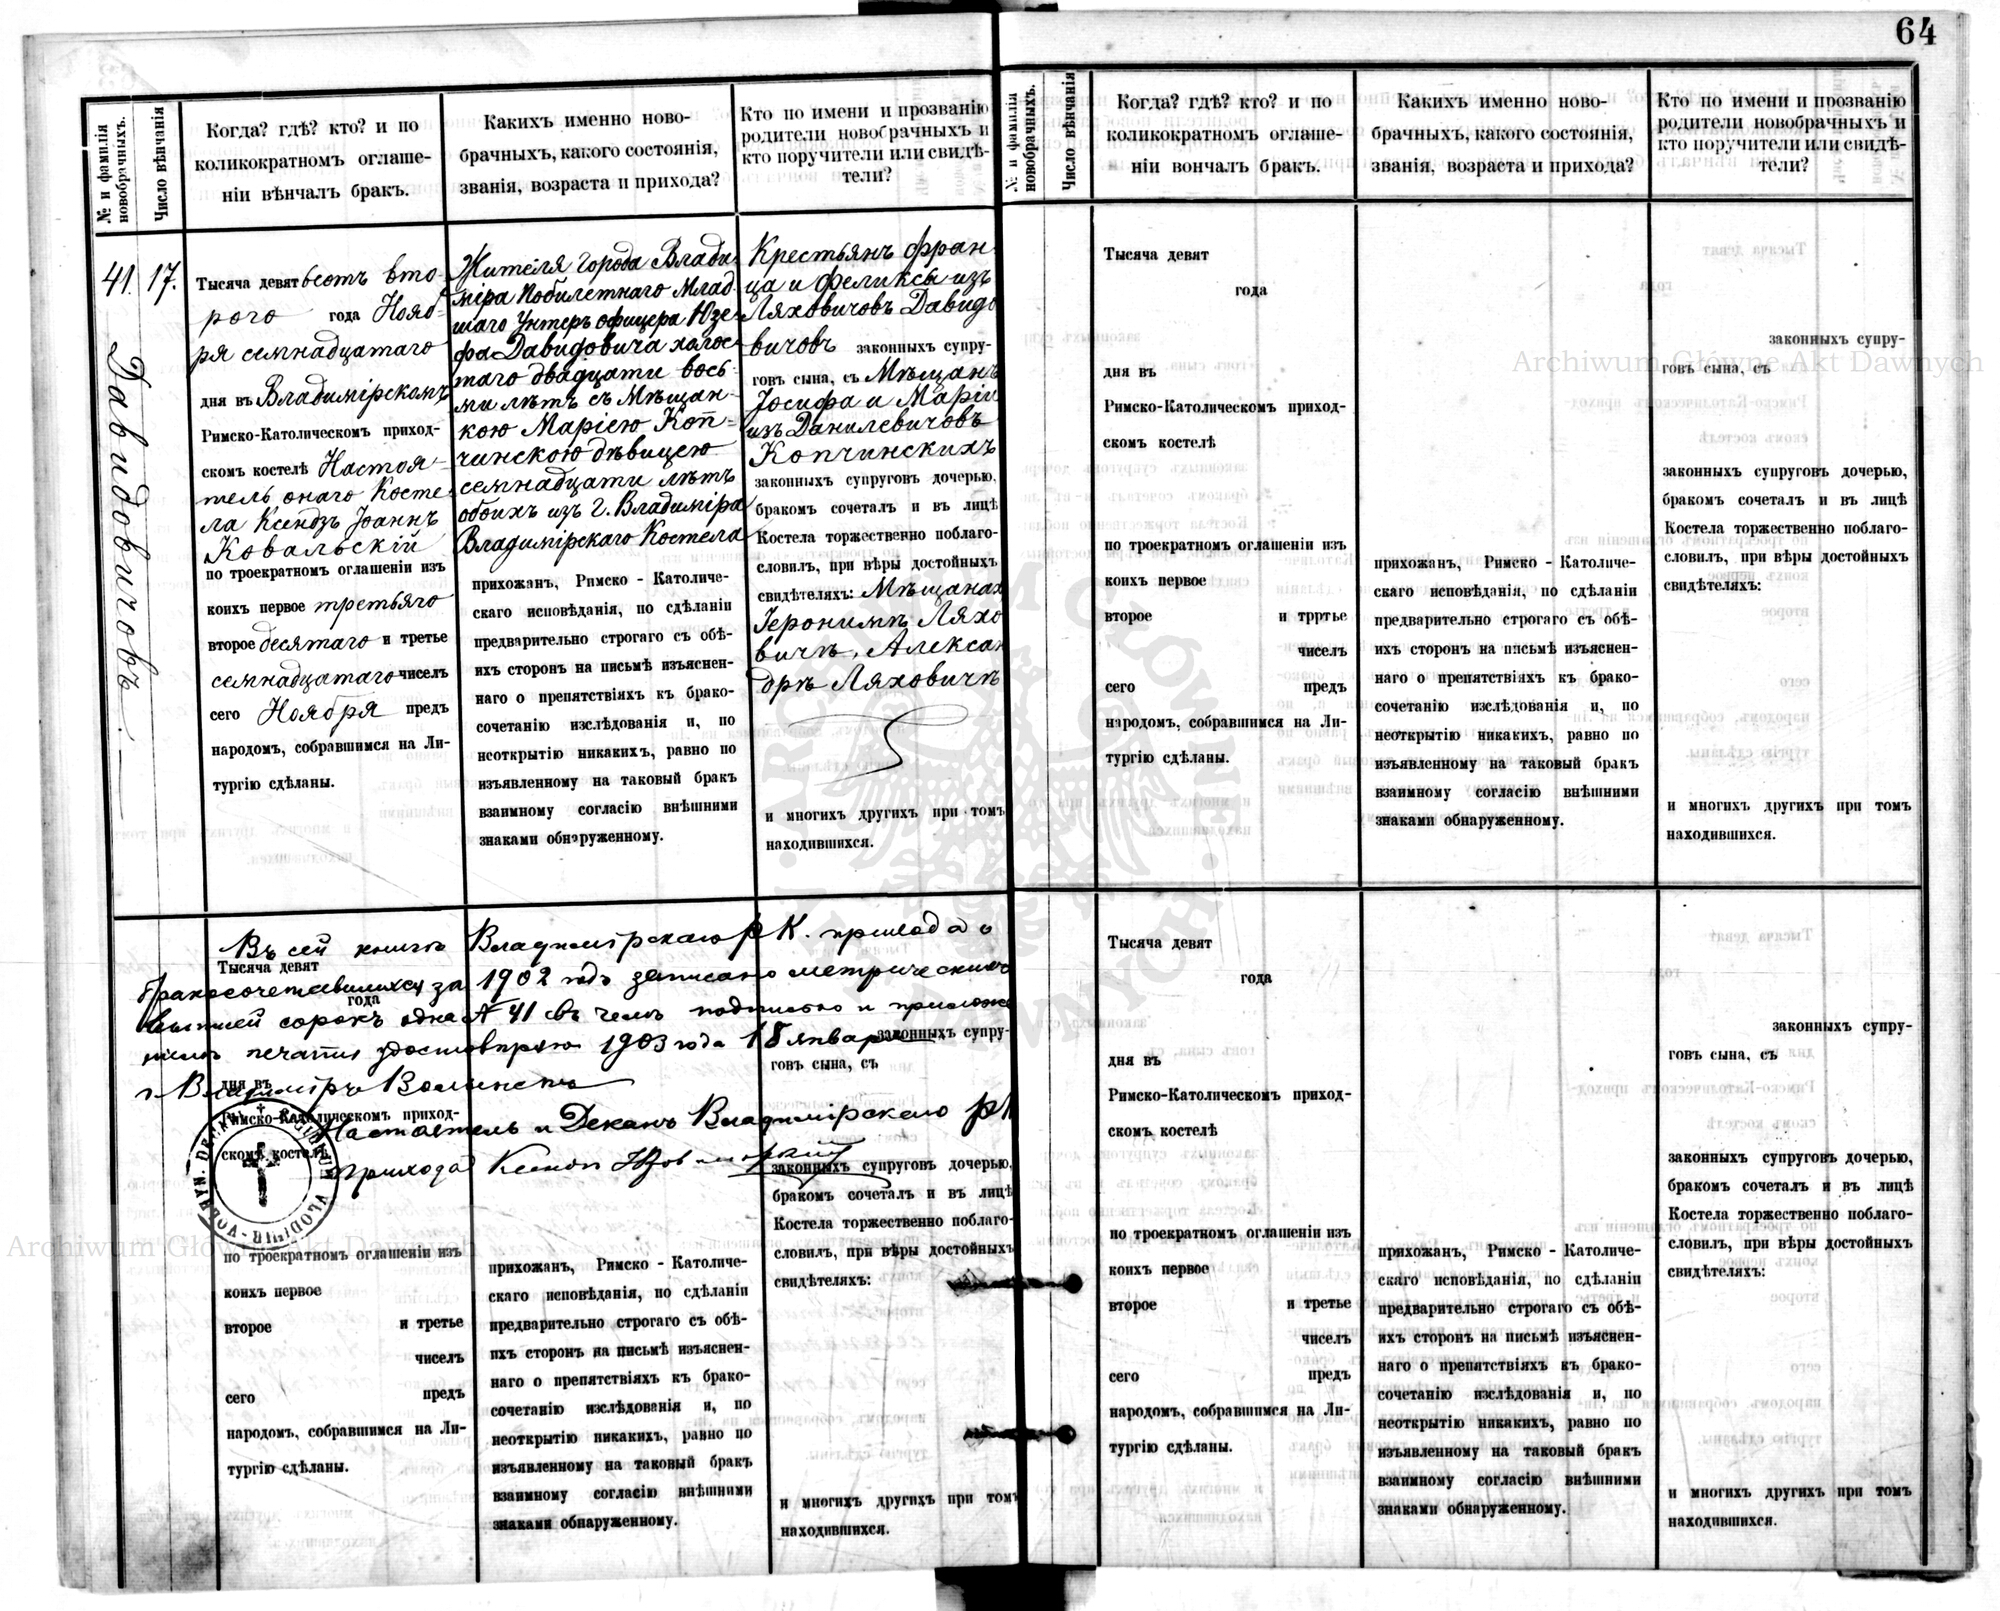 64
№ и фамилія новобрачныхъ.
Число вѣнчанія
Когда? гдѣ? кто? и по
коликократномъ оглаше-
ніи вѣнчалъ бракъ.
Какихъ именно ново-
брачныхъ, какого состоянія,
званія, возраста и прихода?
Кто по имени и прозванію
родители новобрачныхъ и
кто поручители или свидѣ-
тели?
41.
17.
Давидовичовъ.
Тысяча девятьсотъ вто-
рого года Нояб-
ря семнадцатаго
дня въ Владимірскомъ
Римско-Католическомъ приход-
скомъ костелѣ Настоя-
тель онаго Косте-
ла Ксендзъ Іоаннъ
Ковальскій
по троекратномъ оглашеніи изъ
коихъ первое третьяго
второе десятаго и третье
семнадцатаго чиселъ
сего Ноября предъ
народомъ, собравшимся на Ли-
тургію сдѣланы.
Жителя города Влади-
міра Побилетнаго Млад-
шаго Унтеръ офицера Юзе-
фа Давидовича холос-
таго двадцати вось-
ми лѣтъ съ Мѣщан-
кою Маріею Коп-
чинскою дѣвицею
семнадцати лѣтъ
обоихъ изъ г. Владиміра
Владимірскаго Костела
прихожанъ, Римско - Католиче-
скаго исповѣданія, по сдѣланіи
предварительно строгаго съ обѣ-
ихъ сторонъ на письмѣ изъяснен-
наго о препятствіяхъ къ брако-
сочетанію изслѣдованія и, по
неоткрытію никакихъ, равно по
изъявленному на таковый бракъ
взаимному согласію внѣшними
знаками обнаруженному.
Крестьянъ Фран-
ца и Феликсы изъ
Ляховичовъ Давидо
вичовъ законныхъ супру-
говъ сына, съ Мѣщанъ
Іосифа и Маріи
изъ Данилевичовъ
Копчинскихъ
законныхъ супруговъ дочерью,
бракомъ сочеталъ и въ лицѣ
Костела торжественно поблаго-
словилъ, при вѣры достойныхъ
свидѣтеляхъ: Мѣщанах
Іеронимѣ Ляхо
вичѣ, Алексан
дрѣ Ляховичѣ
и многихъ другихъ при томъ
находившихся.
Въ сей книгѣ Владимірскаго р К. прихода о
бракосочетавшихся за 1902 годъ записано метрическихъ
сорокъ № 41 въ чемъ подписью и приложе
печати удостовѣряю 1903 года 18 января
г. Владиміръ Волынскъ
Настоятель и Деканъ Владимірскаго р К
прихода Ксендзъ
Тысяча девят
года
дня въ
Римско-Католическомъ приход-
скомъ костелѣ
по троекратномъ оглашеніи изъ
коихъ первое
второе и третье
чиселъ
сего предъ
народомъ, собравшимся на Ли-
тургію сдѣланы.
прихожанъ, Римско - Католиче-
скаго исповѣданія, по сдѣланіи
предварительно строгаго съ обѣ-
ихъ сторонъ на письмѣ изъяснен-
наго о препятствіяхъ къ брако-
сочетанію изслѣдованія и, по
неоткрытію никакихъ, равно по
изъявленному на таковый бракъ
взаимному согласію внѣшними
знаками обнаруженному.
законныхъ супру-
говъ сына, съ
законныхъ супруговъ дочерью,
бракомъ сочеталъ и въ лицѣ
Костела торжественно поблаго-
словилъ, при вѣры достойныхъ
свидѣтеляхъ:
и многихъ другихъ при томъ
находившихся.
№ и фамилія новобрачныхъ.
Число вѣнчанія
Когда? гдѣ? кто? и по
коликократномъ оглаше-
ніи вончалъ бракъ.
Какихъ именно ново-
брачныхъ, какого состоянія,
званія, возраста и прихода?
Кто по имени и прозванію
родители новобрачныхъ и
кто поручители или свидѣ-
тели?
Тысяча девят
года
дня въ
Римско-Католическомъ приход-
скомъ костелѣ
по троекратномъ оглашеніи изъ
коихъ первое
второе и трртье
чиселъ
сего предъ
народомъ, собравшимся на Ли-
тургію сдѣланы.
прихожанъ, Римско - Католиче-
скаго исповѣданія, по сдѣланіи
предварительно строгаго съ обѣ-
ихъ сторонъ на письмѣ изъяснен-
наго о препятствіяхъ къ брако-
сочетанію изслѣдованія и, по
неоткрытію никакихъ, равно по
изъявленному на таковый бракъ
взаимному согласію внѣшними
знаками обнаруженному.
законныхъ супру-
говъ сына, съ
законныхъ супруговъ дочерью,
бракомъ сочеталъ и въ лицѣ
Костела торжественно поблаго-
словилъ, при вѣры достойныхъ
свидѣтеляхъ:
и многихъ другихъ при томъ
находившихся.
Тысяча девят
года
дня въ
Римско-Католическомъ приход-
скомъ костелѣ
по троекратномъ оглашеніи изъ
коихъ первое
второе и третье
чиселъ
сего предъ
народомъ, собравшимся на Ли-
тургію сдѣланы.
прихожанъ, Римско - Католиче-
скаго исповѣданія, по сдѣланіи
предварительно строгаго съ обѣ-
ихъ сторонъ на письмѣ изъяснен-
наго о препятствіяхъ къ брако-
сочетанію изслѣдованія и, по
неоткрытію никакихъ, равно по
изъявленному на таковый бракъ
взаимному согласію внѣшними
знаками обнаруженному.
законныхъ супру-
говъ сына, съ
законныхъ супруговъ дочерью,
бракомъ сочеталъ и въ лицѣ
Костела торжественно поблаго-
словилъ, при вѣры достойныхъ
свидѣтеляхъ:
и многихъ другихъ при томъ
находившихся.
Archiwum Główne Akt Dawnych
Archiwum Główne Akt Dawnych
ARCHIWUM GŁÓWNE AKT DAWNYCH